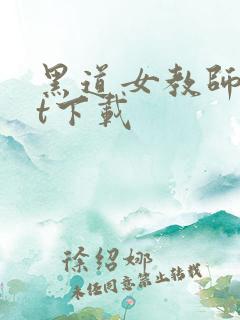 黑道女教師
t下載
徐绍娜
未经同意禁止转载